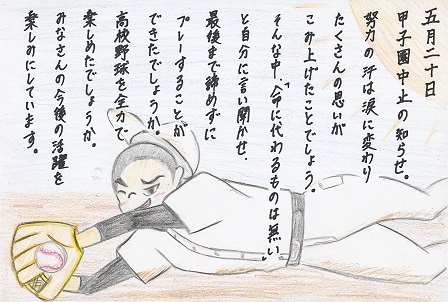 五月二十日
甲子園中止の知らせ。
努力の汗は涙に変わり
たくさんの思いが
こみ上げたことでしょう。
そんな中、“命に代わるものは無い”
と自分に言い聞かせ、
最後まで諦めずに
プレーすることが
できたでしょうか。
高校野球を全力で、
楽しめたでしょうか。
みなさんの今後の活躍を
楽しみにしています。